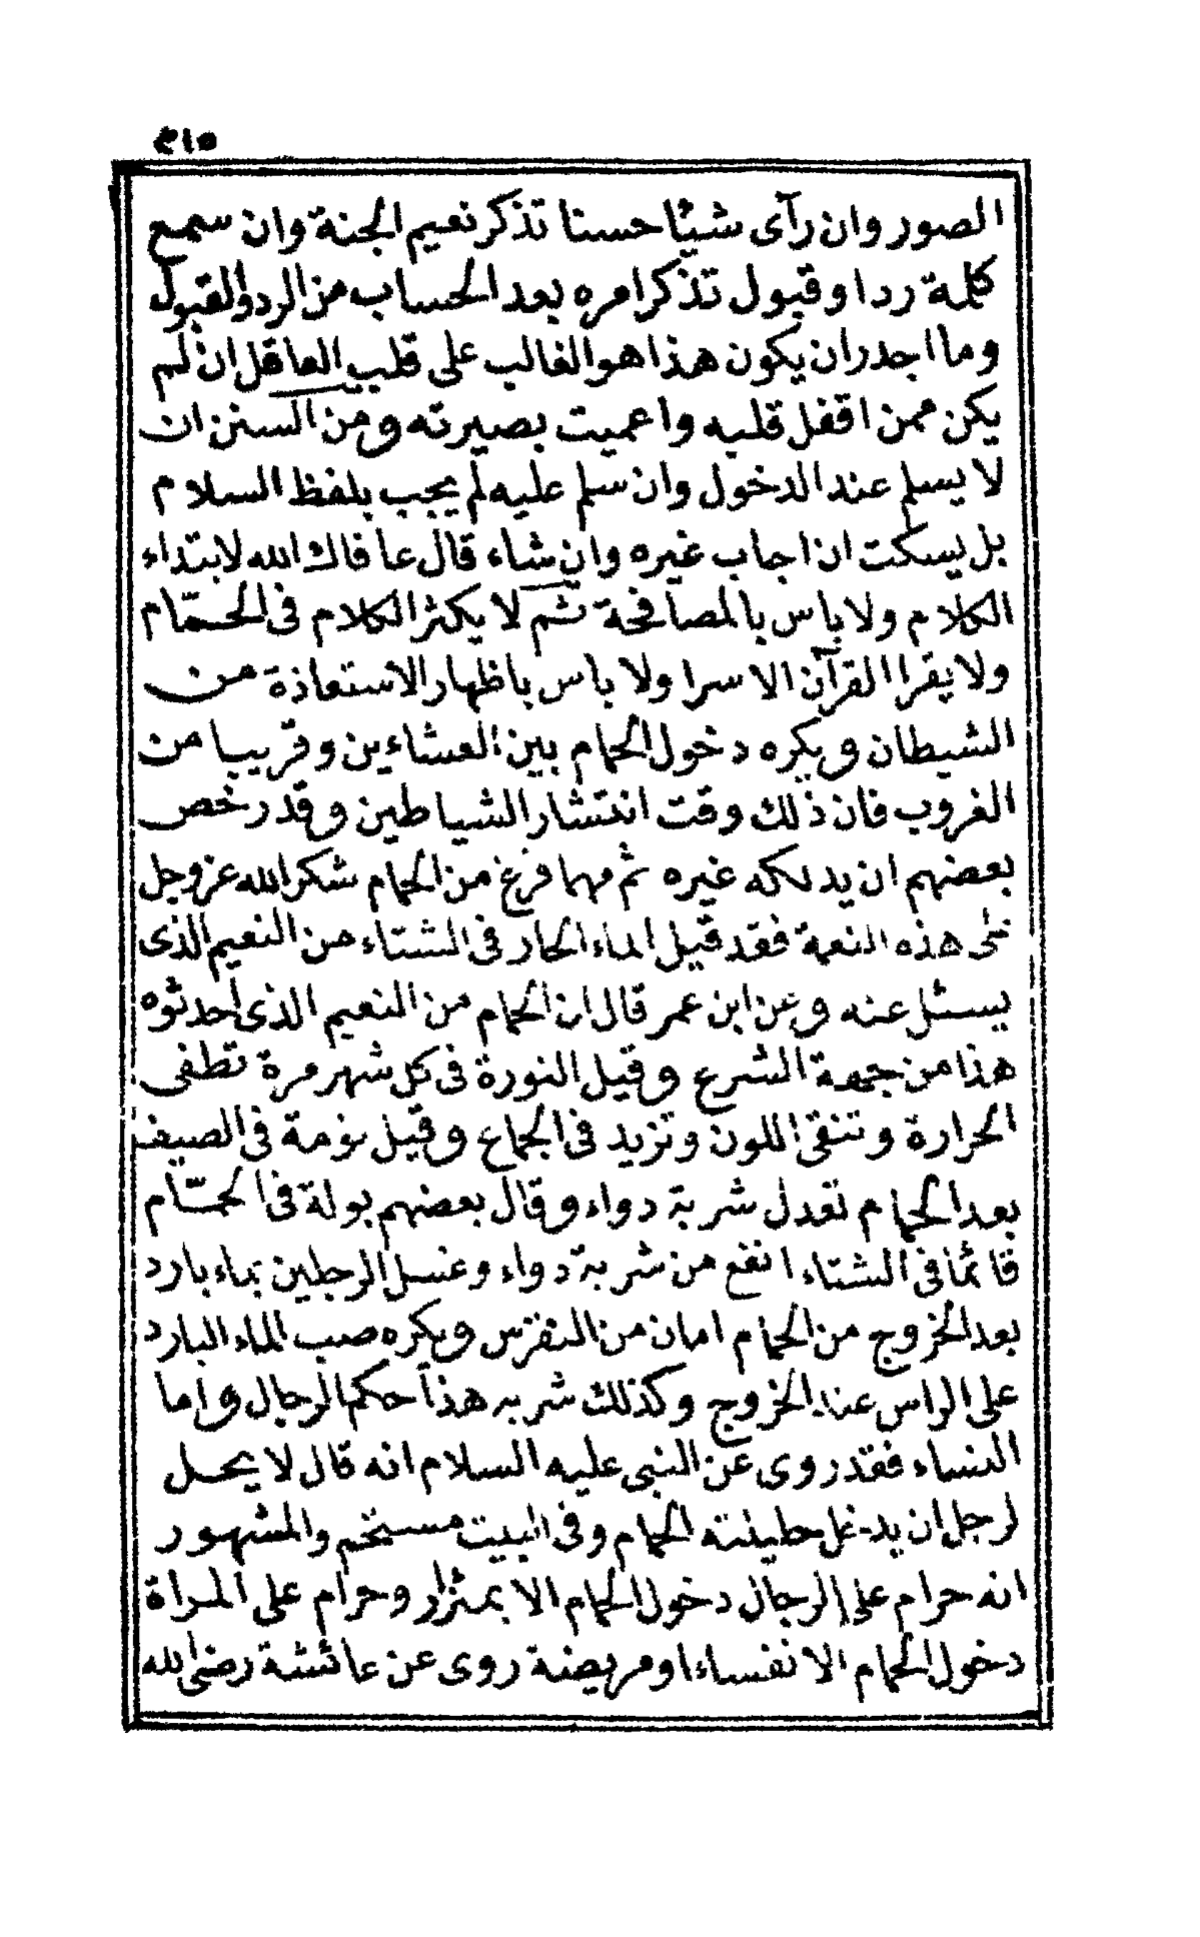 ٥١٥
الصور وان رآى شيئا حسنا تذكر نعيم الجنة وان سمع
كلمة ردا وقبول تذكر امره بعد الحساب من الرد والقبول
وما اجدران يكون هذا هو الغالب على قلب العاقل ان لم
يكن ممن اقفل قلبه واعميت بصيرته ومن السنن ان
لا يسلم عند الدخول وان سلم عليه لم يجب بلفظ السلام
بل يسكت ان اجاب غيره وان شاء قال عافاك الله لابتداء
الكلام ولا باس بالمصافحة ثم لا يكثر الكلام فى الحمّام
ولا يقرا القرآن الا سرا ولا باس باظهار الاستعاذة من
الشيطان ويكره دخول الحمام بين العشاءين وقريبا من
الغروب فان ذلك وقت انتشار الشياطين وقد رخص
بعضهم ان يدلكه غيره ثم مهما فرغ من الحمام شكر الله عز وجل
على هذه النعمة فقد قيل الماء الحار فى الشتاء من النعيم الذى
يسئل عنه وعن ابن عمر قال ان الحمام من النعيم الذى احدثوه
هذا من جهة الشرع وقيل النورة فى كل شهر مرة تطفى
الحرارة وتنقى اللون وتزيد فى الجماع وقيل نومة فى الصيف
بعد الحمام تعدل شربة دواء وقال بعضهم بولة فى الحمّام
قائما فى الشتاء انفع من شربة دواء وغسل الرجلين بماء بارد
بعد الخروج من الحمام امان من النقرس ويكره صب الماء البارد
على الراس عند الخروج وكذلك شربه هذا حكم الرجال واما
النساء فقد روى عن النبى عليه السلام انه قال لا يحل
لرجل ان يدخل حليلته الحمام وفى البيت مستحم والمشهور
انه حرام على الرجال دخول الحمام الا بمئزار وحرام على المراة
دخول الحمام الا نفساء او مريضة روى عن عائشة رضى الله